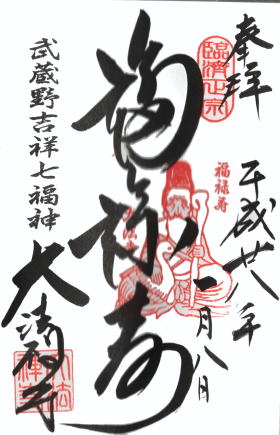 奉拝
臨済正宗
平成廿八年
一月八日
福禄寿
福禄寿
武蔵野吉祥七福神
大法禅寺